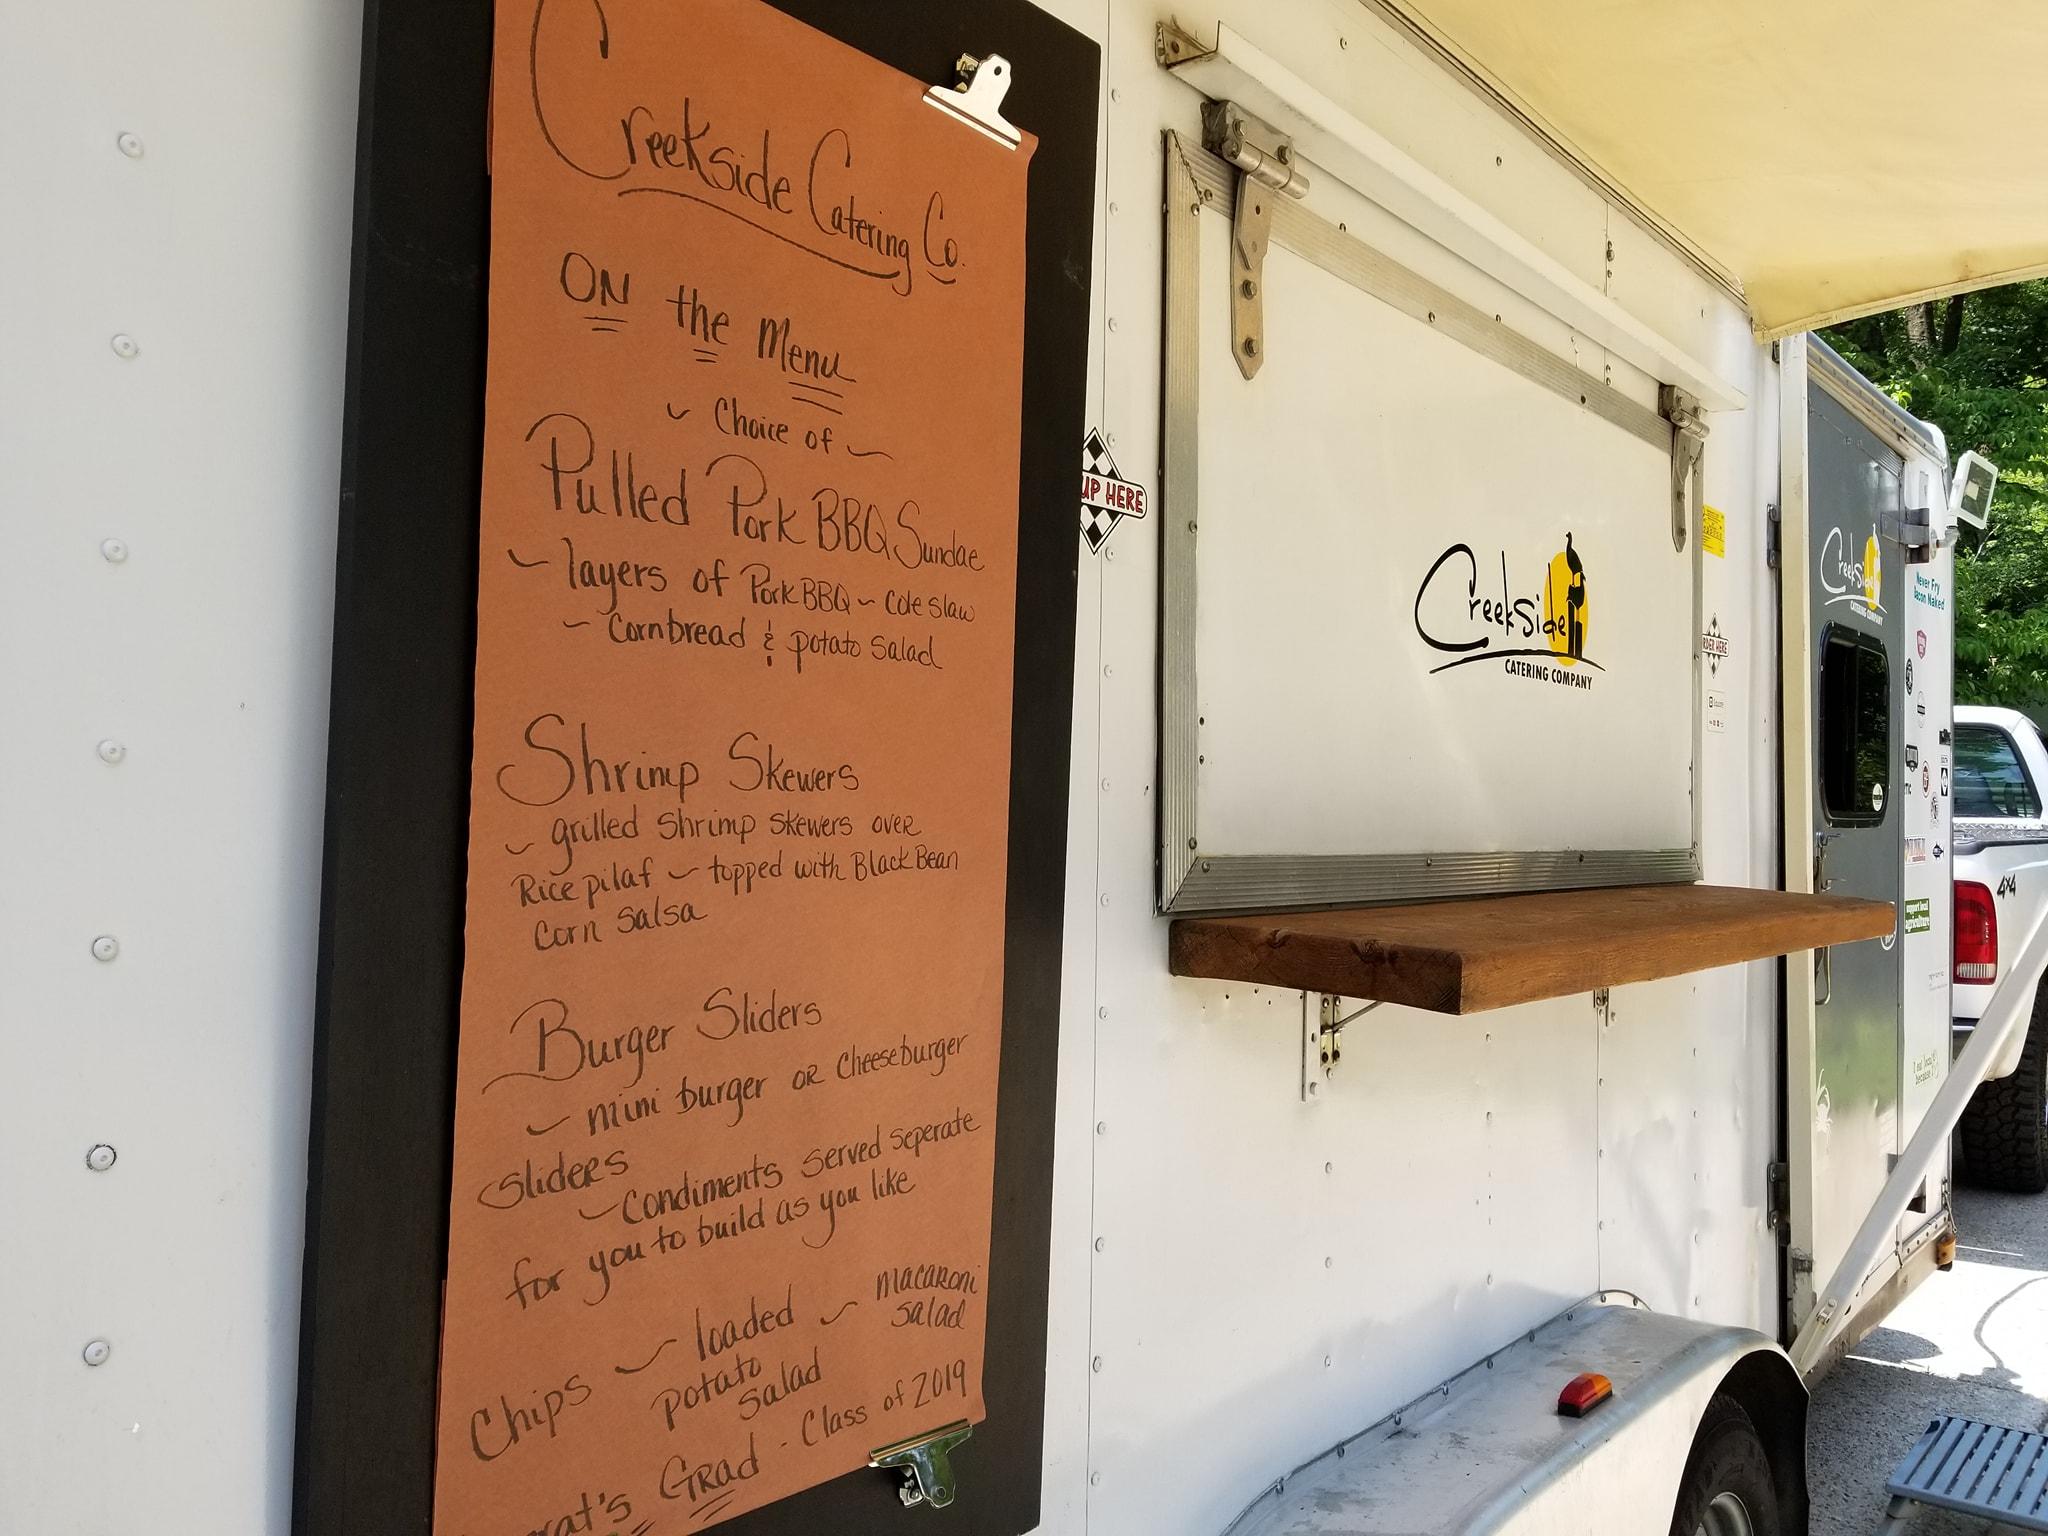 Creekside Catering Co.
ON the Menu
~ Choice of ~
Pulled Pork BBQ Sundae
~ layers of Pork BBQ ~ Cole slaw
~ Cornbread & potato salad
Shrimp Skewers
~ grilled shrimp skewers over
Rice pilaf ~ topped with Black Bean
Corn Salsa
Burger Sliders
~ mini burger or cheeseburger
sliders
~ Condiments served seperate
for you to build as you like
Chips ~ loaded potato salad ~ macaroni salad
Grad - Class of 2019
UP HERE
Creekside
CATERING COMPANY
RDER HERE
Creekside
CATERING COMPANY
Never Fry
Bacon Naked
support local
agriculture
I eat local
because
4x4